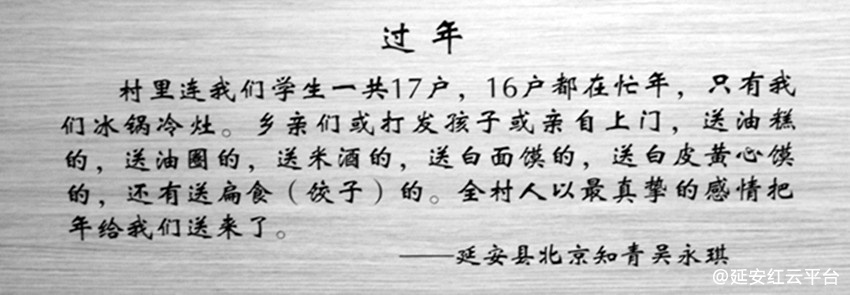 过年
村里连我们学生一共17户，16户都在忙年，只有我
们冰锅冷灶。乡亲们或打发孩子或亲自上门，送油糕
的，送油圈的，送米酒的，送白面馍的，送白皮黄心馍
的，还有送扁食（饺子）的。全村人以最真挚的感情把
年给我们送来了。
——延安县北京知青吴永琪
@延安红云平台